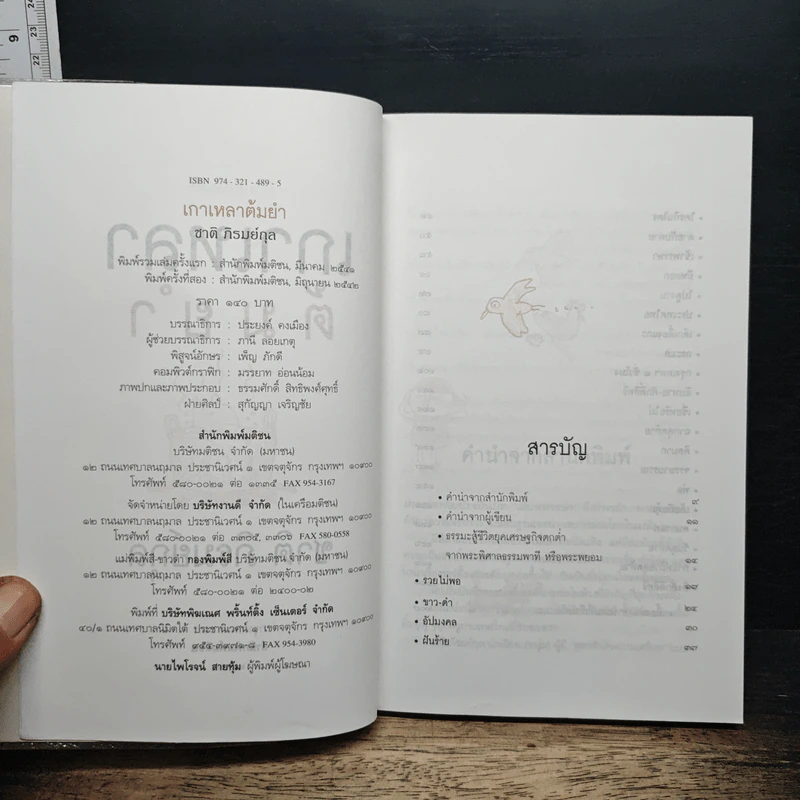 9
24
23
22
ISBN 974 - 321 - 489 - 5
เกาเหลาต้มยำ
ชาติ ภิรมย์กุล
พิมพ์รวมเล่มครั้งแรก : สำนักพิมพ์มติชน, มีนาคม ๒๕๔๑
พิมพ์ครั้งที่สอง : สำนักพิมพ์มติชน, มิถุนายน ๒๕๔๒
ราคา ๑๔๐ บาท
บรรณาธิการ : ประยงค์ คงเมือง
ผู้ช่วยบรรณาธิการ : ภานี ลอยเกตุ
พิสูจน์อักษร : เพ็ญ ภักดี
คอมพิวต์กราฟิก : มรรยาท อ่อนน้อม
ภาพปกและภาพประกอบ : ธรรมศักดิ์ สิทธิพงศ์ศุทธิ์
ฝ่ายศิลป์ : สุกัญญา เจริญชัย
สำนักพิมพ์มติชน
บริษัทมติชน จำกัด (มหาชน)
๑๒ ถนนเทศบาลนฤมาล ประชานิเวศน์ ๑ เขตจตุจักร กรุงเทพฯ ๑๐๙๐๐
โทรศัพท์ ๕๘๐-๐๐๒๑ ต่อ ๑๓๓๕ FAX 954-3167
จัดจำหน่ายโดย บริษัทงานดี จำกัด (ในเครือมติชน)
๑๒ ถนนเทศบาลนฤมาล ประชานิเวศน์ ๑ เขตจตุจักร กรุงเทพฯ ๑๐๙๐๐
โทรศัพท์ ๕๘๐-๐๐๒๑ ต่อ ๓๓๐๕, ๓๓๐๖ FAX 580-0558
แม่พิมพ์สี-ขาวดำ กองพิมพ์สี บริษัทมติชน จำกัด (มหาชน)
๑๒ ถนนเทศบาลนฤมาล ประชานิเวศน์ ๑ เขตจตุจักร กรุงเทพฯ ๑๐๙๐๐
โทรศัพท์ ๕๘๐-๐๐๒๑ ต่อ ๒๔๐๐-๐๒
พิมพ์ที่ บริษัทพิฆเณศ พริ้นท์ติ้ง เซ็นเตอร์ จำกัด
๔๐/๑ ถนนเทศบาลนิมิตใต้ ประชานิเวศน์ ๑ เขตจตุจักร กรุงเทพฯ ๑๐๙๐๐
โทรศัพท์ ๙๕๔-๓๙๗๑-๘ FAX 954-3980
นายไพโรจน์ สายหุ้ม ผู้พิมพ์ผู้โฆษณา
สารบัญ
• คำนำจากสำนักพิมพ์ ๙
• คำนำจากผู้เขียน ๑๑
• ธรรมะสู้ชีวิตยุคเศรษฐกิจตกต่ำ
จากพระพิศาลธรรมพาที หรือพระพยอม ๑๔
• รวยไม่พอ ๑๗
• ขาว-ดำ ๒๔
• อัปมงคล ๓๐
• ฝันร้าย ๓๗